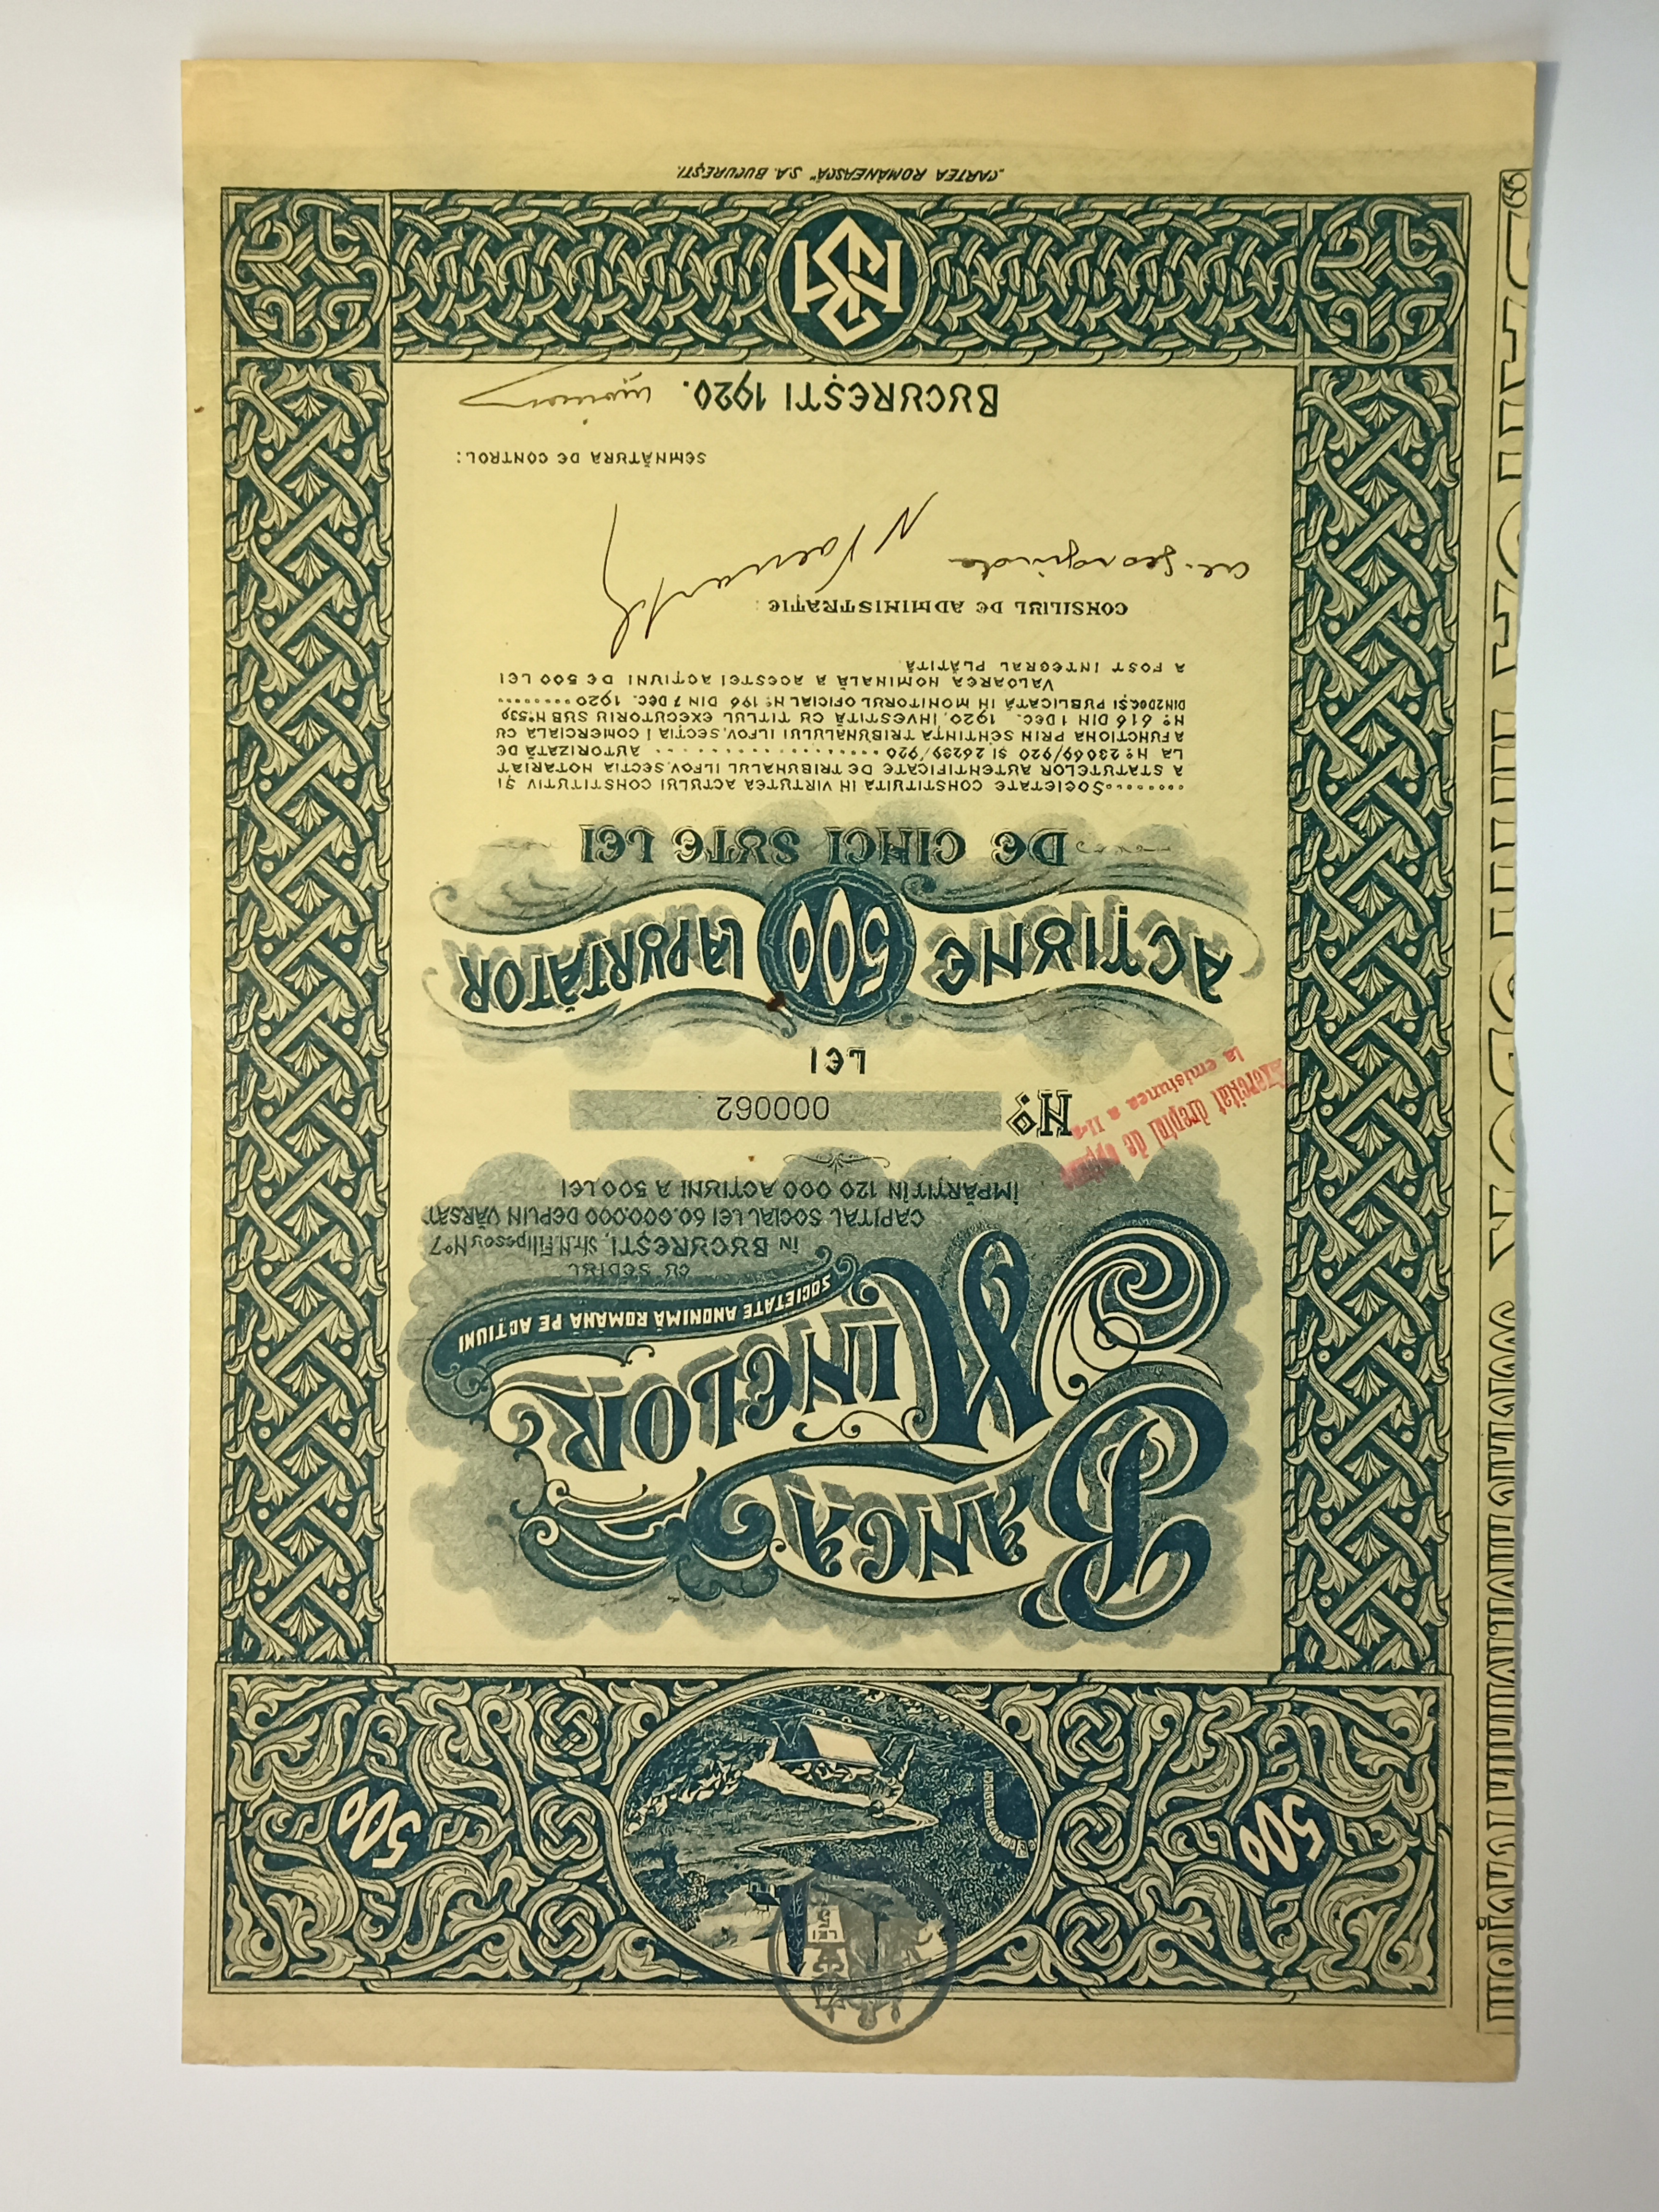 500
500
BANCA
MINELOR
SOCIETATE ANONIMĂ ROMÂNĂ PE ACȚIUNI
CU SEDIUL
în BUCUREȘTI, Str. N. Filipescu Nº 7
CAPITAL SOCIAL LEI 60.000.000 DEPLIN VĂRSAT
ÎMPĂRȚIT ÎN 120 000 ACȚIUNI A 500 LEI
Nº 000062
Exercitat dreptul de
la emisiunea a II-a
LEI
ACȚIUNE 500 LA PURTĂTOR
DE CINCI SUTE LEI
SOCIETATE CONSTITUITA IN VIRTUTEA ACTULUI CONSTITUTIV ȘI
A STATUTELOR AUTENTIFICATE DE TRIBUNALUL ILFOV, SECTIA NOTARIAT
LA Nº 23069/920 ȘI 26239/920 AUTORIZATĂ DE
A FUNCTIONA PRIN SENTINȚA TRIBUNALULUI ILFOV, SECȚIA I COMERCIALA CU
Nº 616 DIN 1 DEC. 1920, INVESTITĂ CU TITLUL EXECUTORIU SUB Nº 539
DIN 2 DEC. ȘI PUBLICATĂ IN MONITORUL OFICIAL Nº 196 DIN 7 DEC. 1920
VALOAREA NOMINALĂ A ACESTEI ACȚIUNI DE 500 LEI
A FOST INTEGRAL PLĂTITĂ.
CONSILIUL DE ADMINISTRAȚIE :
SEMNĂTURA DE CONTROL :
BUCUREȘTI 1920.
„CARTEA ROMÂNEASCĂ" S.A. BUCUREȘTI.